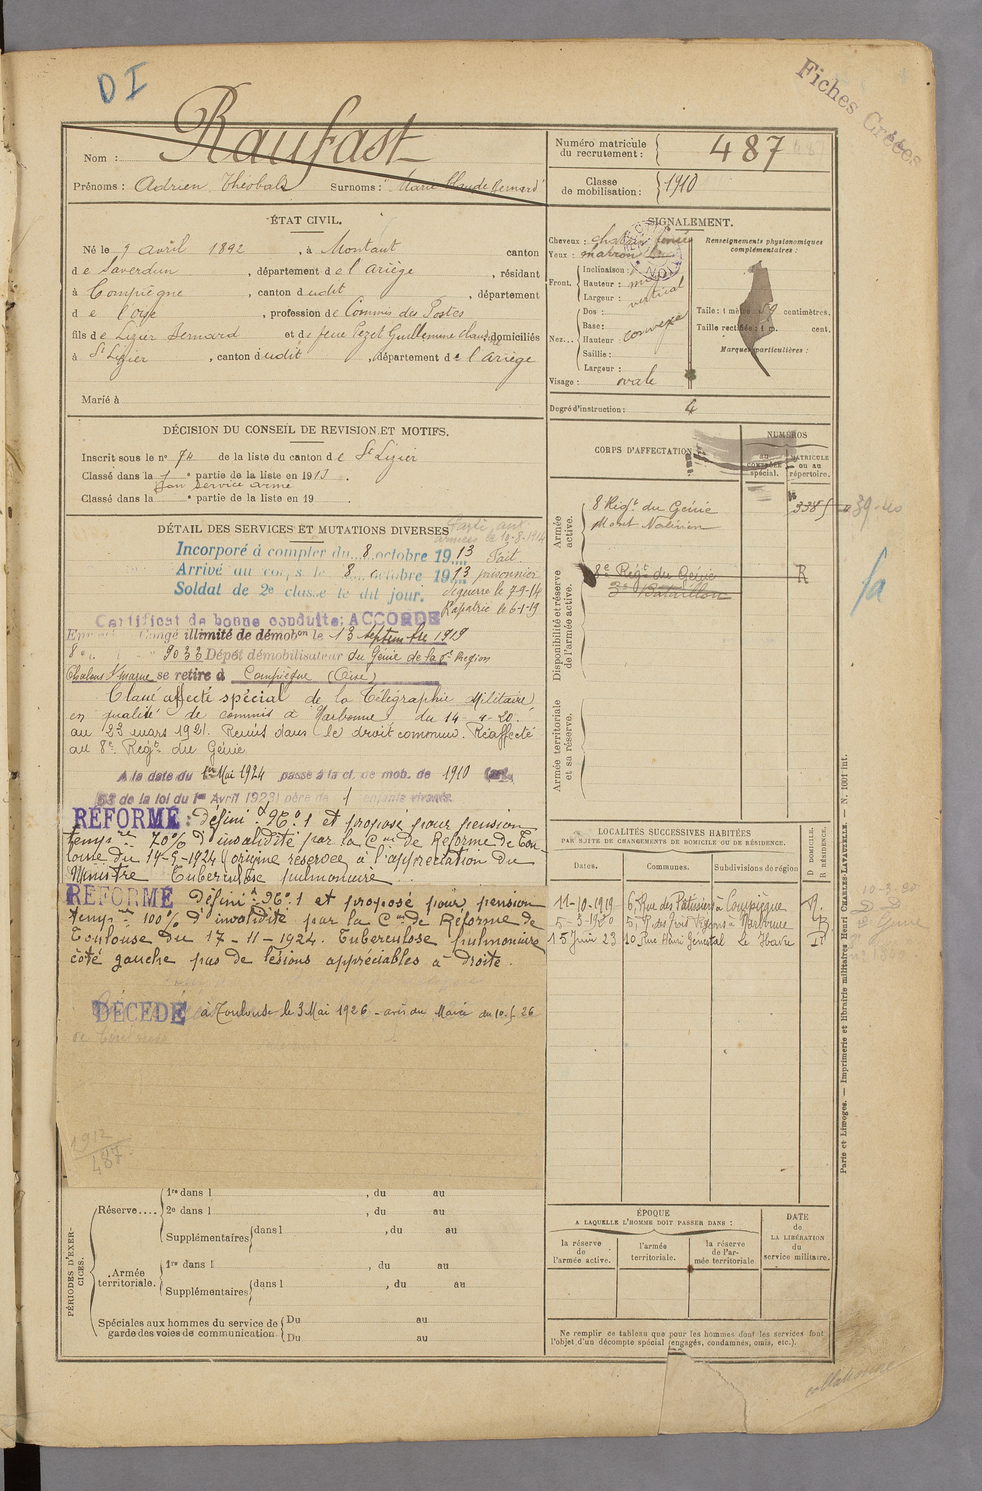 DI
Fiches Créées
Nom : Raufast
Prénoms : Adrien Théobald Surnoms : "Marie Claude Bernard"
Numéro matricule du recrutement : 487
Classe de mobilisation : 1910
ÉTAT CIVIL.
Né le 9 avril 1892, à Montaut canton
de Saverdun, département de l'Ariège, résidant
à Compiègne, canton dudit, département
de l'Oise, profession de Commis des Postes
fils de et de feue Guillemine domiciliés
à St Lizier, canton dudit, département de l'Ariège
Marié à
SIGNALEMENT.
Cheveux : chatain foncé
Yeux : marron
Front. Inclinaison :
Hauteur : moy
Largeur : vertical
Nez... Dos :
Base :
Hauteur convexe
Saillie :
Largeur :
Visage : ovale
Renseignements physionomiques complémentaires :
Taille : 1 mètre 59 centimètres.
Taille rectifiée : 1 m. cent.
Marques particulières :
Degré d'instruction : 4
DÉCISION DU CONSEIL DE REVISION ET MOTIFS.
Inscrit sous le n° 74 de la liste du canton de St Lizier
Classé dans la 1 e partie de la liste en 1913.
Bon service armé
Classé dans la e partie de la liste en 19 .
CORPS D'AFFECTATION
NUMÉROS
au contrôle spécial.
MATRICULE ou au répertoire.
Armée active.
8 Régt du Génie
Mont Valérien
Disponibilité et réserve de l'armée active.
8e Régt du Génie R
3e Bataillon
Armée territoriale et sa réserve.
DÉTAIL DES SERVICES ET MUTATIONS DIVERSES
Parti aux armées le
Incorporé à compter du 8 octobre 1913
Arrivé au corps le 8 octobre 1913
Soldat de 2e classe le dit jour.
Fait prisonnier de guerre le 7-9-14
Rapatrié le 6-1-19
Certificat de bonne conduite: ACCORDÉ
Congé illimité de démobon le 13 septembre 1919
Dépôt démobilisateur du Génie de la Region
Chalons s/Marne se retire à Compiègne (Oise)
Classé affecté spécial de la Télégraphie Militaire,
en qualité de commis à Narbonne, du
au 23 mars 1921. Remis dans le droit commun. Réaffecté
au 8e Régt du Génie
A la date du 1er Mai 1924 passé à la cl. de mob. de 1910
de la loi du 1er Avril 1923) père de 1 enfants vivants.
RÉFORMÉ : Défini No 1 et proposé pour pension
tempre 70% d'invalidité par la Con de Réforme de Tou
louse du 14-5-1924 (origine réservée à l'appréciation du
Ministre Tuberculose pulmonaire
RÉFORMÉ Défini No 1 et proposé pour pension
tempre 100% d'invalidité par la Con de Réforme de
Toulouse du 17-11-1924. Tuberculose pulmonaire
côté gauche pas de lésions appréciables à droite.
DÉCÉDÉ à Toulouse le 3 Mai 1926 - avis du Maire du 10-5-26
1912
487
LOCALITÉS SUCCESSIVES HABITÉES
PAR SUITE DE CHANGEMENTS DE DOMICILE OU DE RÉSIDENCE.
Dates. Communes. Subdivisions de région
D DOMICILE. R RÉSIDENCE.
11-10-1919 6, Rue des Patissiers à Compiègne R.
5-3-1920 5, R. des Trois à Narbonne R
15 Juin 23 10 Rue Henri Génestal Le Havre
PÉRIODES D'EXERCICES.
Réserve.... 1re dans l , du au
2e dans l , du au
Supplémentaires dans l , du au
Armée territoriale. 1re dans l , du au
Supplémentaires dans l , du au
Spéciales aux hommes du service de garde des voies de communication. Du au
Du au
ÉPOQUE
A LAQUELLE L'HOMME DOIT PASSER DANS :
la réserve de l'armée active.
l'armée territoriale.
la réserve de l'armée territoriale.
DATE de LA LIBÉRATION du service militaire.
Ne remplir ce tableau que pour les hommes dont les services font
l'objet d'un décompte spécial (engagés, condamnés, omis, etc.).
Paris et Limoges. — Imprimerie et librairie militaires Henri CHARLES-LAVAUZELLE. — N. 1001 int.
collationné